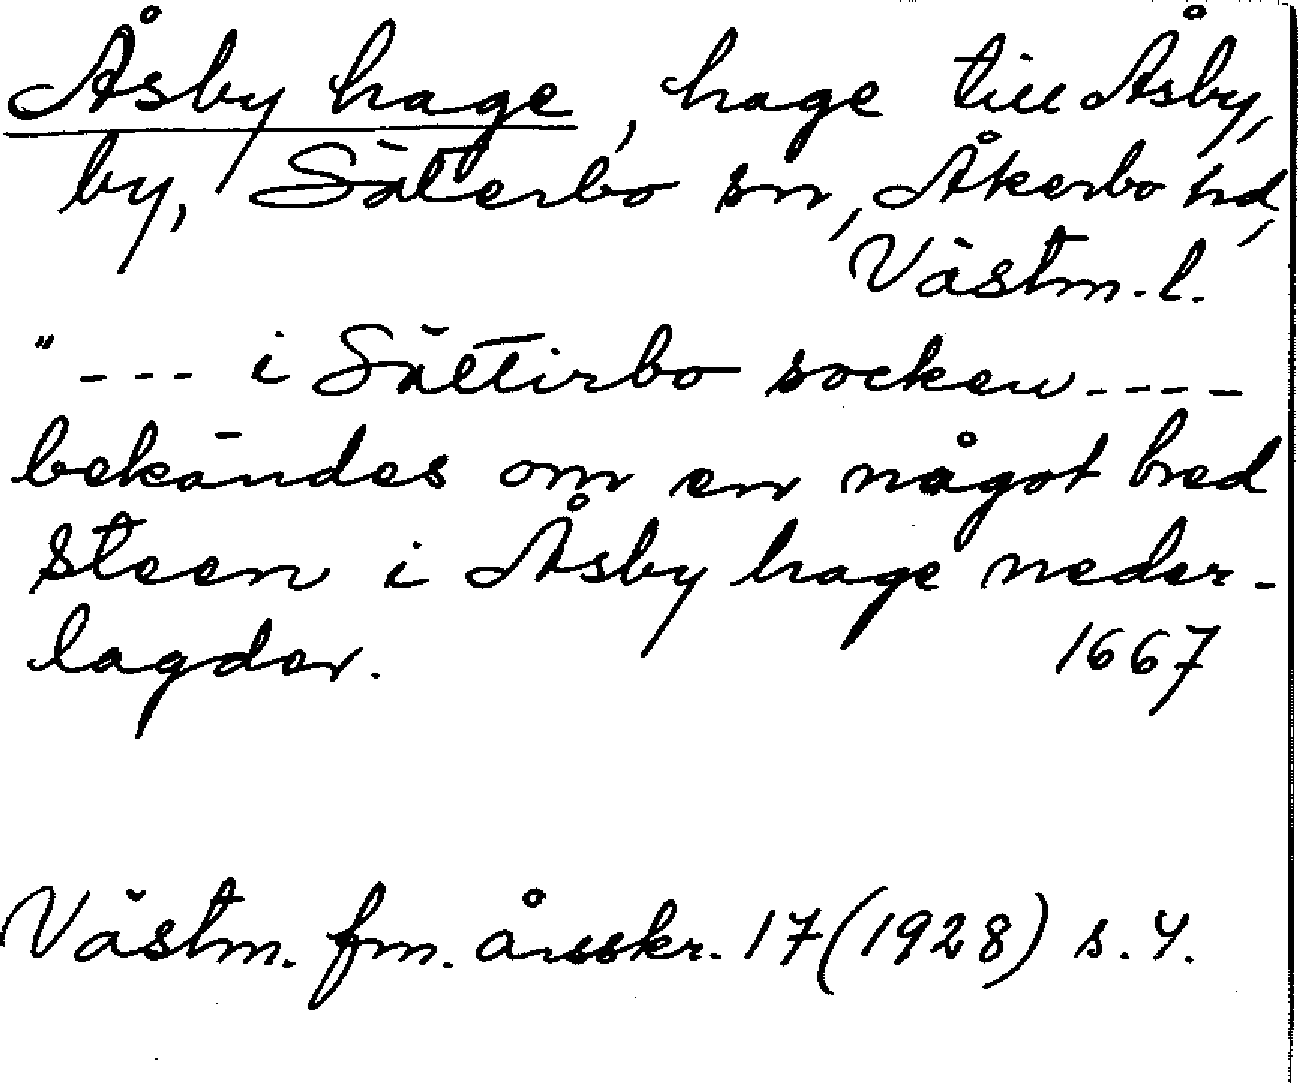 Åsby hage, hage till Åsby,
by, Säterbo sn, Åkerbo hd,
Västm. l.
"--- i Sättirbo socken ----
bekändes om en något bred
steen i Åsby hage neder-
lagder. 1667
Västm. fm. årsskr. 17 (1928) s. 4.